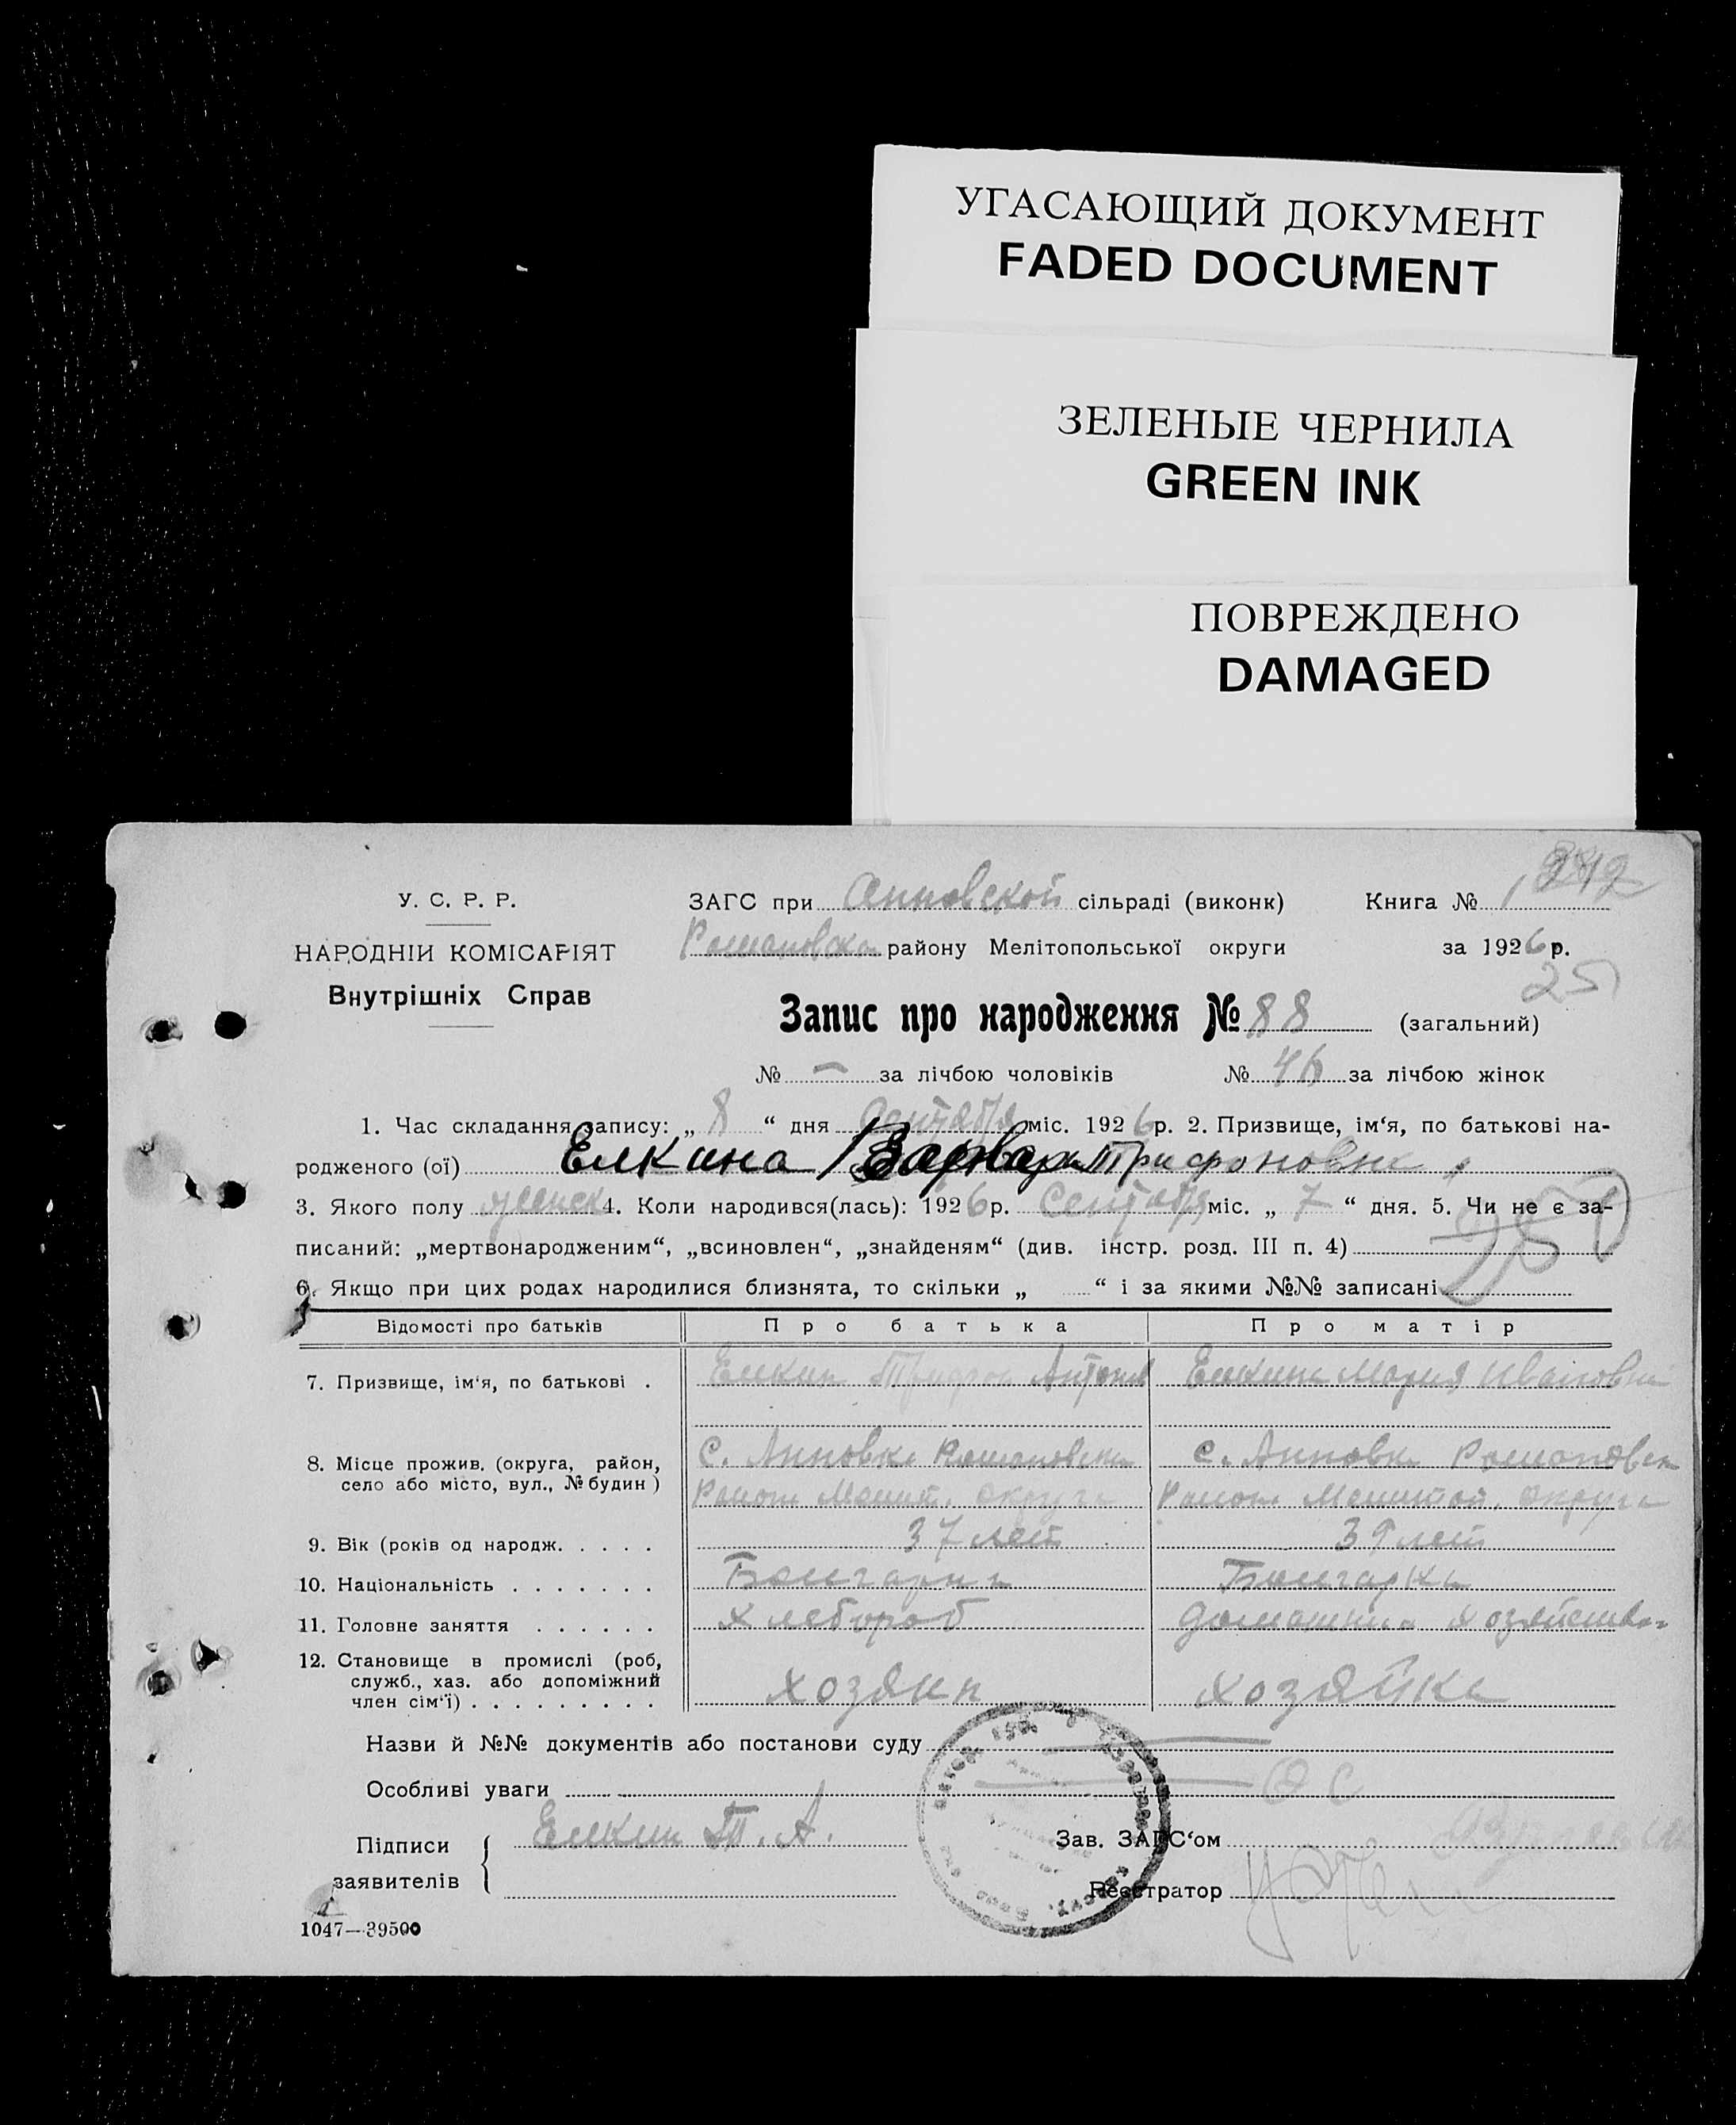 УГАСАЮЩИЙ ДОКУМЕНТ
FADED DOCUMENT
ЗЕЛЕНЫЕ ЧЕРНИЛА
GREEN INK
ПОВРЕЖДЕНО
DAMAGED
У. С. Р. Р.
НАРОДНІЙ КОМІСАРІЯТ
Внутрішніх Справ
ЗАГС при Анновской сільраді (виконк) Книга № 1
Романовска району Мелітопольської округи за 1926 р.
25
Запис про народження № 88 (загальний)
№ — за лічбою чоловіків № 46 за лічбою жінок
1. Час складання запису: „ 8 “ дня Сентября міс. 1926 р. 2. Призвище, ім‘я, по батькові на-
родженого (ої) Елкина Варвара Трифоновна
3. Якого полу женск 4. Коли народився(лась): 1926 р. Сентября міс. „ 7 “ дня. 5. Чи не є за-
писаний: „мертвонародженим“, „всиновлен“, „знайденям“ (див. інстр. розд. III п. 4)
6. Якщо при цих родах народилися близнята, то скільки „ “ і за якими №№ записані
Відомості про батьків Про батька Про матір
7. Призвище, ім‘я, по батькові . Елкин Трифон Антонов Елкина Мария Ивановна
8. Місце прожив. (округа, район, село або місто, вул., № будин) с. Анновка Романовска с. Анновка Романовск
Района Мелит. округа Района Мелитоп. округа
9. Вік (років од народж. . . . . 37 лет 39 лет
10. Національність . . . . . . . Болгарин Болгарка
11. Головне заняття . . . . . . Хлебороб домашнее хозяйство
12. Становище в промислі (роб, служб., хаз. або допоміжний член сім‘ї) . . . . . . . . . хозяин хозяйка
Назви й №№ документів або постанови суду
Особливі уваги
Підписи заявителів Елкин Т. А.
Зав. ЗАГС‘ом
Реєстратор
1047—39500